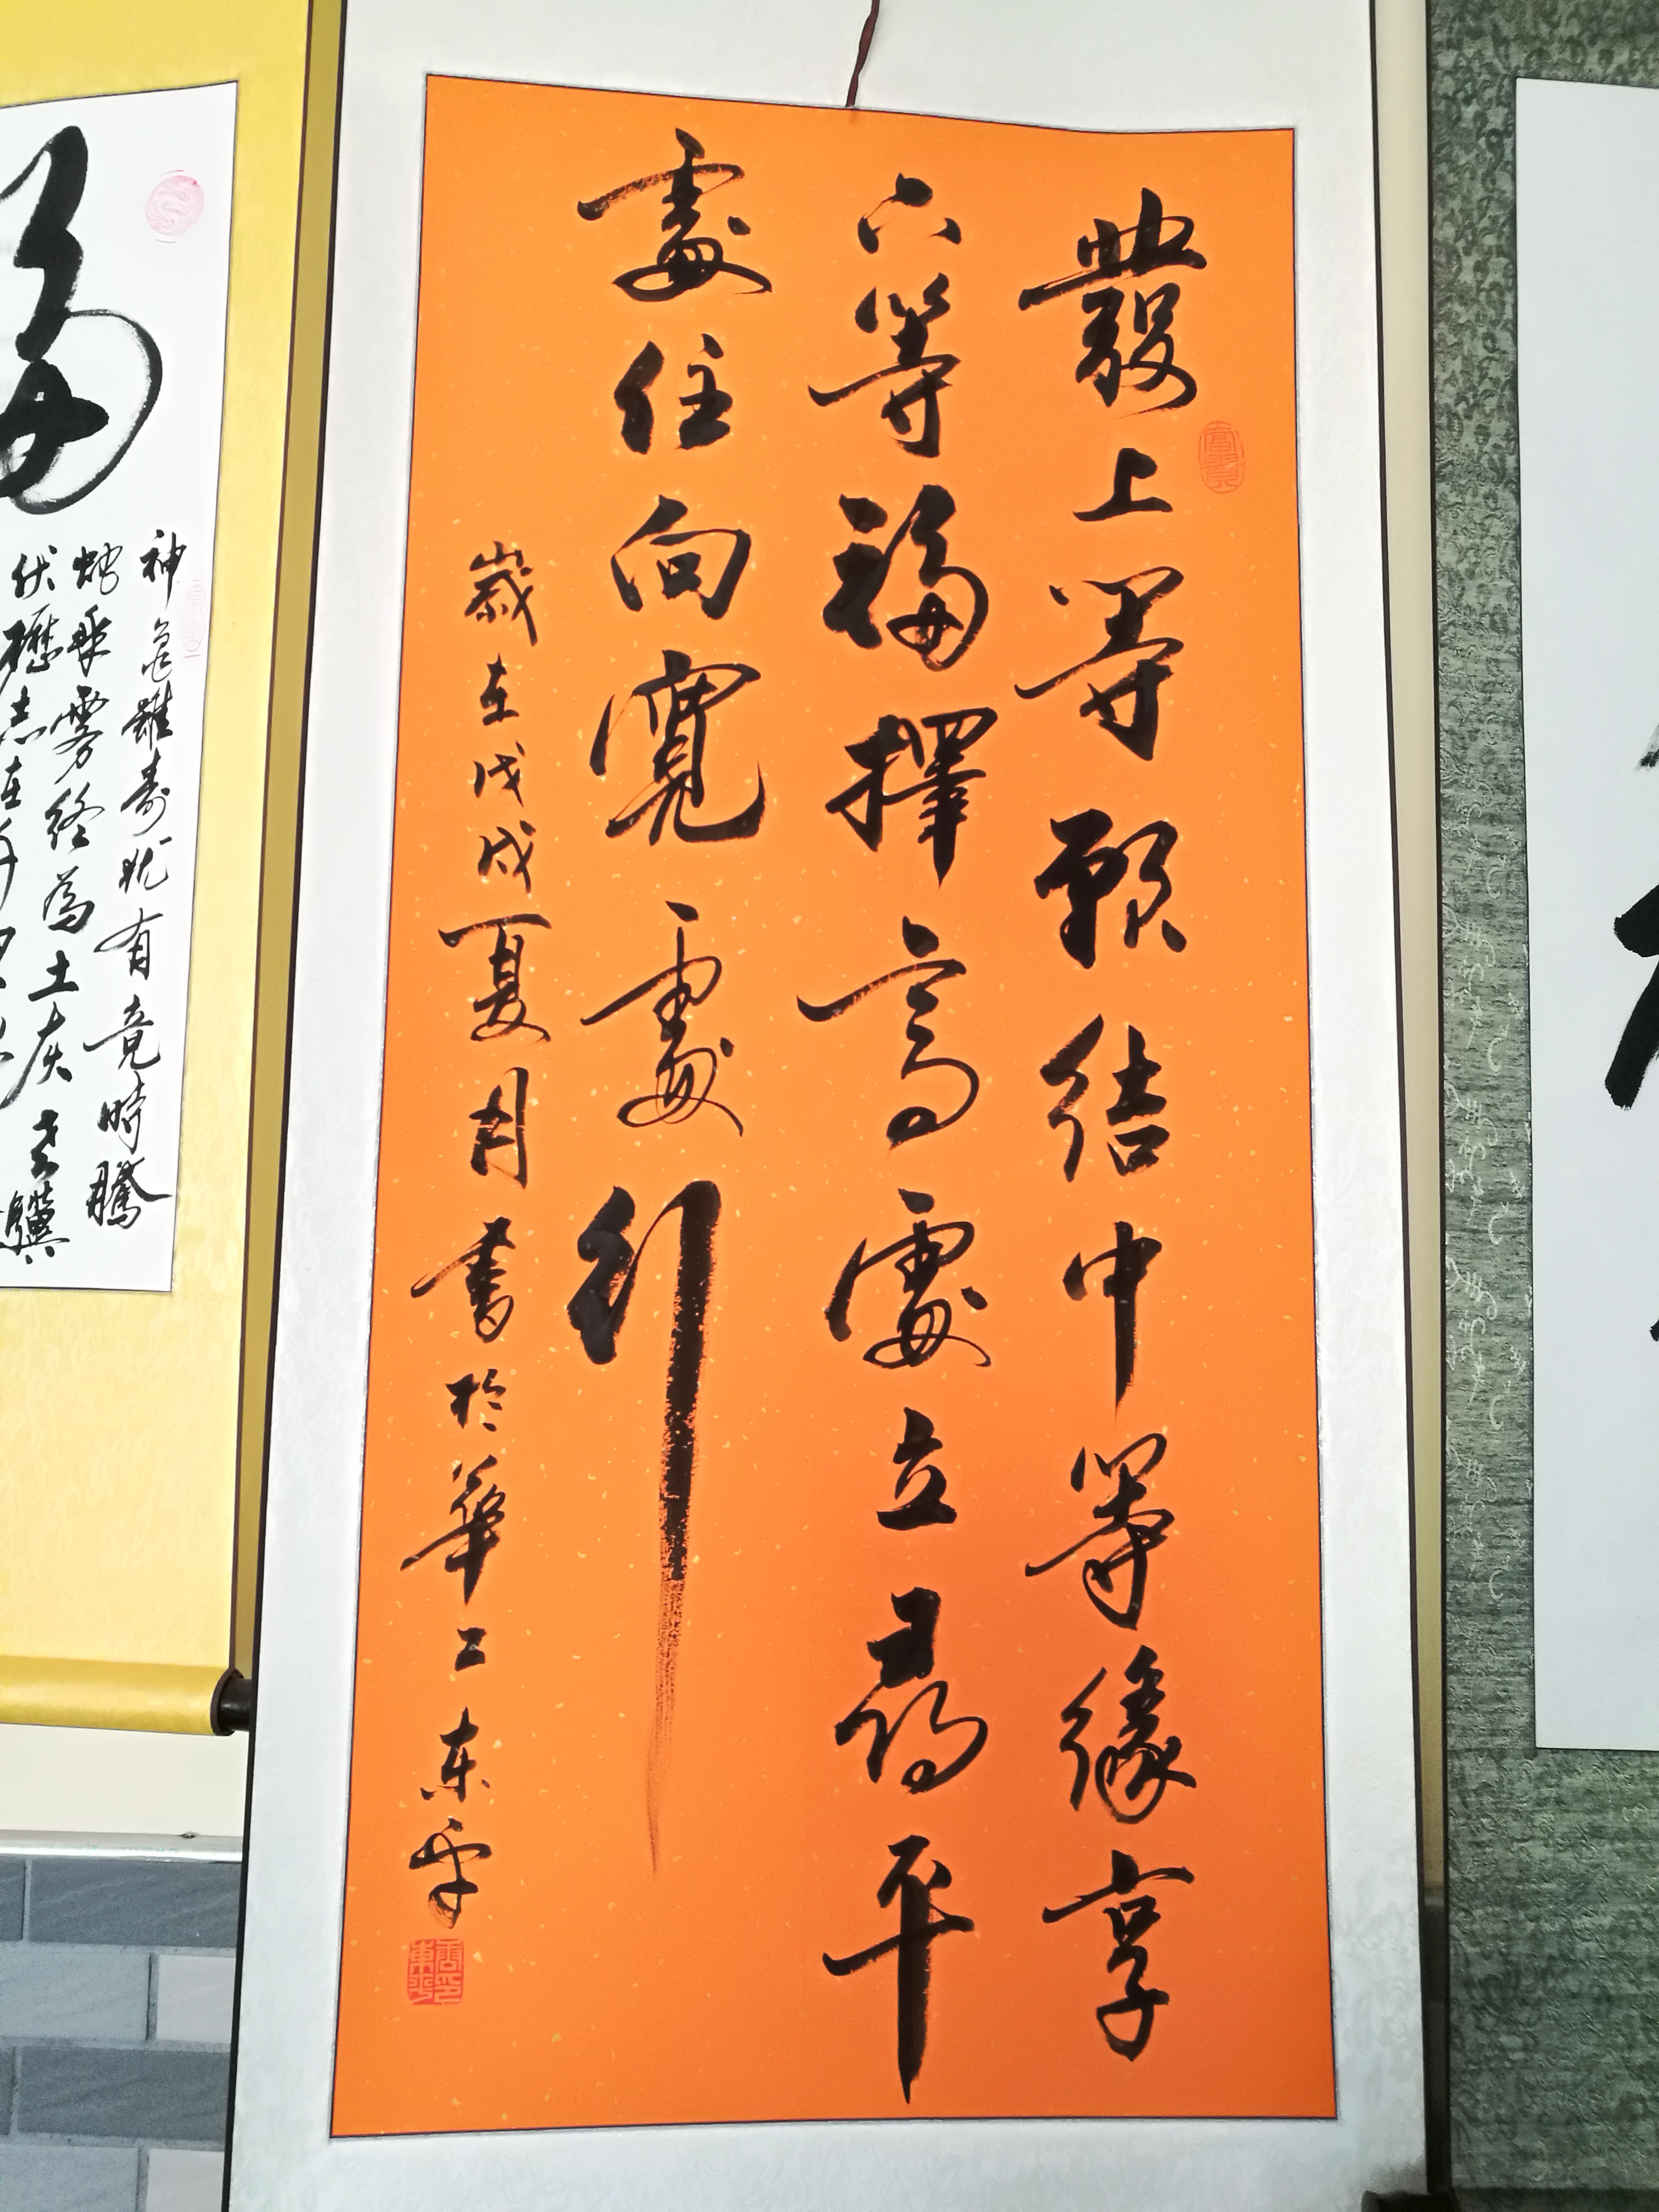 發上等願結中等緣享
下等福擇高處立尋平
處住向寬處行
歲在戊戌夏月書於華工东平
神龜雖壽犹有竟時騰
蛇乘霧終為土灰老驥
伏櫪志在千